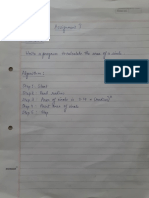 Assignment 7
Write a program to calculate the area of a circle
Algorithm:
Step 1: Start
Step 2: Read radius
Step 3: Area of circle
Step 4: Print Area of circle
Step 5: Stop